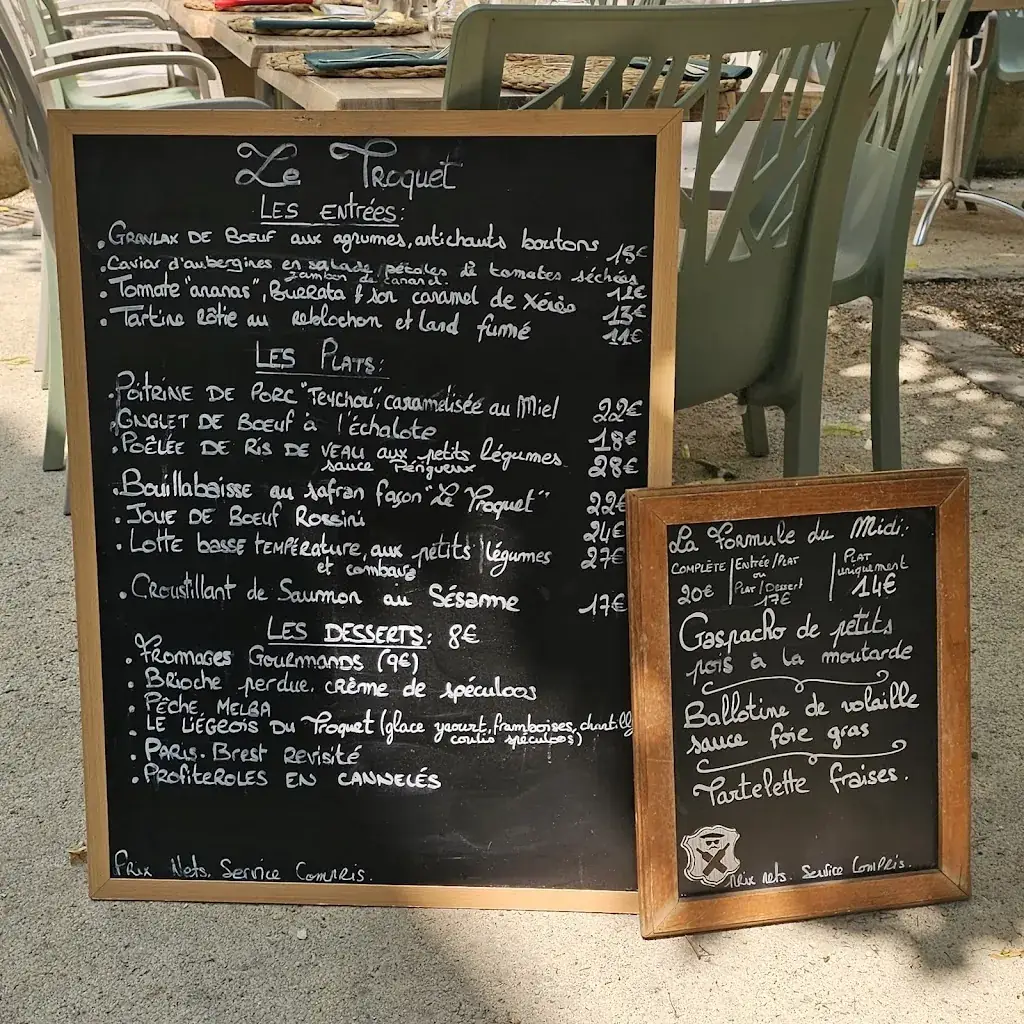 Le Troquet
LES ENTRÉES:
. GRAVLAX DE BOEUF aux agrumes, artichauts boutons 15€
. Caviar d'aubergines en salade pétales de tomates séchées
jambon de canard. 12€
. Tomate "ananas", BURRATA & son caramel de Xérès 13€
. Tartine rôtie au reblochon et lard fumé 11€
LES PLATS:
. POITRINE DE PORC "TEYCHOU", caramélisée au Miel 22€
. ONGLET DE BOEUF à l'échalote 18€
. POÊLÉE DE RIS DE VEAU aux petits légumes 28€
sauce Périgueux
. Bouillabaisse au safran façon "Le Troquet" 22€
. JOUE DE BOEUF ROSSINI 24€
. LOTTE basse TEMPÉRATURE, aux petits légumes 27€
et combava
. Croustillant de Saumon au Sésame 17€
LES DESSERTS: 8€
. FROMAGES GOURMANDS (9€)
. BRIOCHE perdue, crème de spéculoos
. PÊCHE MELBA
. LE LIÉGEOIS DU Troquet (glace yaourt, framboises, chantilly
coulis spéculoos)
. PARIS-BREST REVISITÉ
. PROFITEROLES EN CANNELÉS
Prix Nets, Service Compris.
La Formule du Midi:
COMPLÈTE 20€
Entrée/PLAT
ou
PLAT/DESSERT
17€
PLAT
uniquement
14€
Gaspacho de petits
pois à la moutarde
Ballotine de volaille
sauce foie gras
Tartelette fraises.
Prix nets. Service Compris.